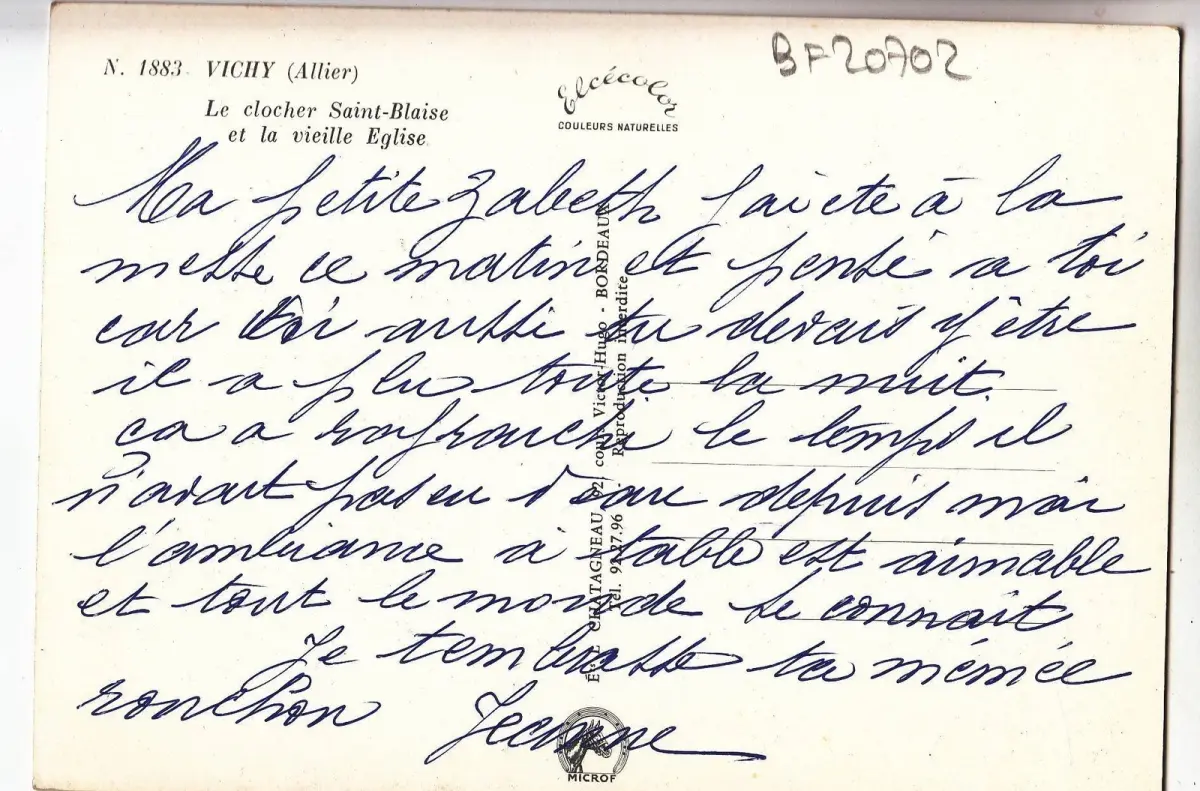 BF20702
N. 1883 VICHY (Allier)
Le clocher Saint-Blaise
et la vieille Eglise
Elcécolor
COULEURS NATURELLES
Ma petite Zabeth j'ai été à la
messe ce matin et pensé a toi
car toi aussi tu devais y être
il a plu toute la nuit.
ca a rafraichi le temps il
n'avait pas eu d'eau depuis mai
l'ambiance à table est aimable
et tout le monde se connait
Je t'embrasse ta mémée
ronchon Jeanne
Éts CHATAGNEAU 92, cours Victor-Hugo - BORDEAUX
Tél. 92.27.96 - Reproduction interdite
MICROF